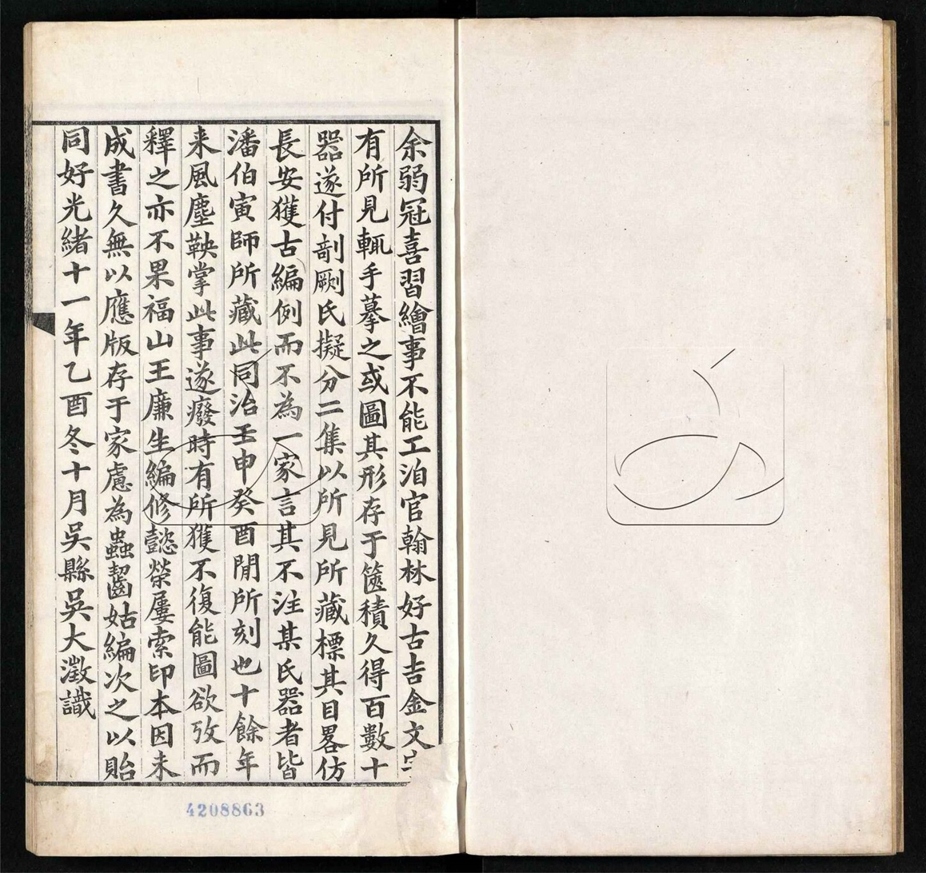 余弱冠喜習繪事不能工洎官翰林好古吉金文字
有所見輒手摹之或圖其形存于篋積久得百數十
器遂付剞劂氏擬分二集以所見所藏標其目畧仿
長安獲古編例而不為一家言其不注某氏器者皆
潘伯寅師所藏此同治壬申癸酉閒所刻也十餘年
来風塵鞅掌此事遂癈時有所獲不復能圖欲攷而
釋之亦不果福山王廉生編修懿榮屢索印本因未
成書久無以應版存于家慮為蟲齧姑編次之以貽
同好光緒十一年乙酉冬十月吳縣吳大澂識
4208863